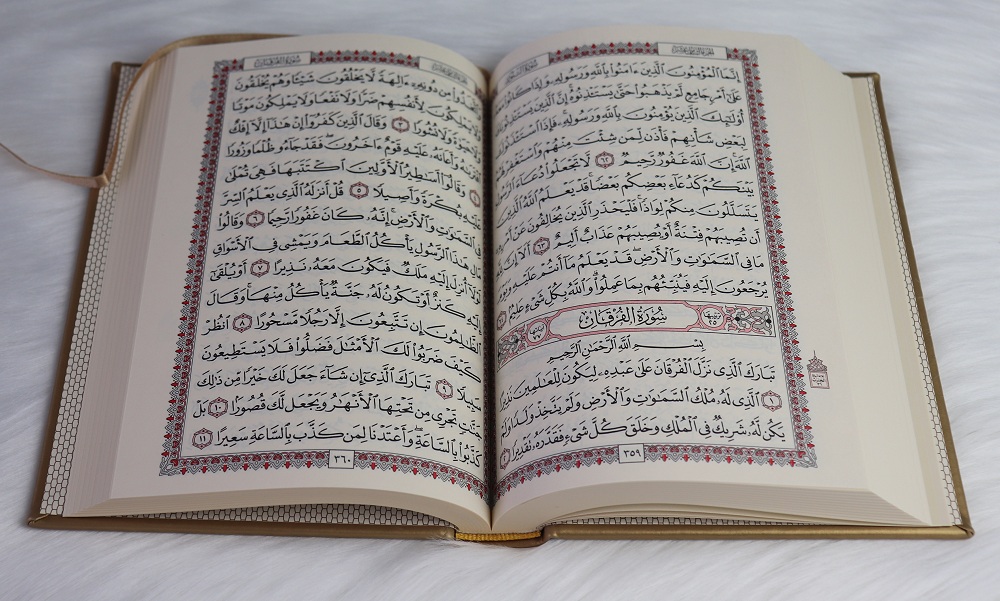 سُورَةُ النُّورِ
إِنَّمَا الْمُؤْمِنُونَ الَّذِينَ ءَامَنُوا بِاللَّهِ وَرَسُولِهِ وَإِذَا كَانُوا مَعَهُ
عَلَىٰ أَمْرٍ جَامِعٍ لَّمْ يَذْهَبُوا حَتَّىٰ يَسْتَـْٔذِنُوهُ إِنَّ الَّذِينَ يَسْتَـْٔذِنُونَكَ
أُولَٰئِكَ الَّذِينَ يُؤْمِنُونَ بِاللَّهِ وَرَسُولِهِ فَإِذَا اسْتَـْٔذَنُوكَ
لِبَعْضِ شَأْنِهِمْ فَأْذَن لِّمَن شِئْتَ مِنْهُمْ وَاسْتَغْفِرْ لَهُمُ
اللَّهَ إِنَّ اللَّهَ غَفُورٌ رَّحِيمٌ ٦٢ لَّا تَجْعَلُوا دُعَاءَ الرَّسُولِ
بَيْنَكُمْ كَدُعَاءِ بَعْضِكُم بَعْضًا قَدْ يَعْلَمُ اللَّهُ الَّذِينَ
يَتَسَلَّلُونَ مِنكُمْ لِوَاذًا فَلْيَحْذَرِ الَّذِينَ يُخَالِفُونَ عَنْ أَمْرِهِ
أَن تُصِيبَهُمْ فِتْنَةٌ أَوْ يُصِيبَهُمْ عَذَابٌ أَلِيمٌ ٦٣ أَلَا إِنَّ لِلَّهِ
مَا فِي السَّمَٰوَٰتِ وَالْأَرْضِ قَدْ يَعْلَمُ مَا أَنتُمْ عَلَيْهِ وَيَوْمَ
يُرْجَعُونَ إِلَيْهِ فَيُنَبِّئُهُم بِمَا عَمِلُوا وَاللَّهُ بِكُلِّ شَيْءٍ عَلِيمٌ ٦٤
تَرتيبها ٢٥ سُورَةُ الْفُرْقَانِ آياتها ٧٧
بِسْمِ اللَّهِ الرَّحْمَٰنِ الرَّحِيمِ
تَبَارَكَ الَّذِي نَزَّلَ الْفُرْقَانَ عَلَىٰ عَبْدِهِ لِيَكُونَ لِلْعَٰلَمِينَ نَذِيرًا
١ الَّذِي لَهُ مُلْكُ السَّمَٰوَٰتِ وَالْأَرْضِ وَلَمْ يَتَّخِذْ وَلَدًا وَلَمْ
يَكُن لَّهُ شَرِيكٌ فِي الْمُلْكِ وَخَلَقَ كُلَّ شَيْءٍ فَقَدَّرَهُ تَقْدِيرًا ٢
٣٥٩
سُورَةُ الْفُرْقَانِ
وَاتَّخَذُوا مِن دُونِهِ ءَالِهَةً لَّا يَخْلُقُونَ شَيْئًا وَهُمْ يُخْلَقُونَ
وَلَا يَمْلِكُونَ لِأَنفُسِهِمْ ضَرًّا وَلَا نَفْعًا وَلَا يَمْلِكُونَ مَوْتًا
وَلَا حَيَوٰةً وَلَا نُشُورًا ٣ وَقَالَ الَّذِينَ كَفَرُوا إِنْ هَٰذَا إِلَّا إِفْكٌ
افْتَرَىٰهُ وَأَعَانَهُ عَلَيْهِ قَوْمٌ ءَاخَرُونَ فَقَدْ جَاءُو ظُلْمًا وَزُورًا
٤ وَقَالُوا أَسَٰطِيرُ الْأَوَّلِينَ اكْتَتَبَهَا فَهِيَ تُمْلَىٰ
عَلَيْهِ بُكْرَةً وَأَصِيلًا ٥ قُلْ أَنزَلَهُ الَّذِي يَعْلَمُ السِّرَّ
فِي السَّمَٰوَٰتِ وَالْأَرْضِ إِنَّهُ كَانَ غَفُورًا رَّحِيمًا ٦ وَقَالُوا
مَالِ هَٰذَا الرَّسُولِ يَأْكُلُ الطَّعَامَ وَيَمْشِي فِي الْأَسْوَاقِ
لَوْلَا أُنزِلَ إِلَيْهِ مَلَكٌ فَيَكُونَ مَعَهُ نَذِيرًا ٧ أَوْ يُلْقَىٰ
إِلَيْهِ كَنزٌ أَوْ تَكُونُ لَهُ جَنَّةٌ يَأْكُلُ مِنْهَا وَقَالَ
الظَّٰلِمُونَ إِن تَتَّبِعُونَ إِلَّا رَجُلًا مَّسْحُورًا ٨ انظُرْ
كَيْفَ ضَرَبُوا لَكَ الْأَمْثَٰلَ فَضَلُّوا فَلَا يَسْتَطِيعُونَ
سَبِيلًا ٩ تَبَارَكَ الَّذِي إِن شَاءَ جَعَلَ لَكَ خَيْرًا مِّن ذَٰلِكَ
جَنَّٰتٍ تَجْرِي مِن تَحْتِهَا الْأَنْهَٰرُ وَيَجْعَل لَّكَ قُصُورًا ١٠ بَلْ
كَذَّبُوا بِالسَّاعَةِ وَأَعْتَدْنَا لِمَن كَذَّبَ بِالسَّاعَةِ سَعِيرًا ١١
٣٦٠